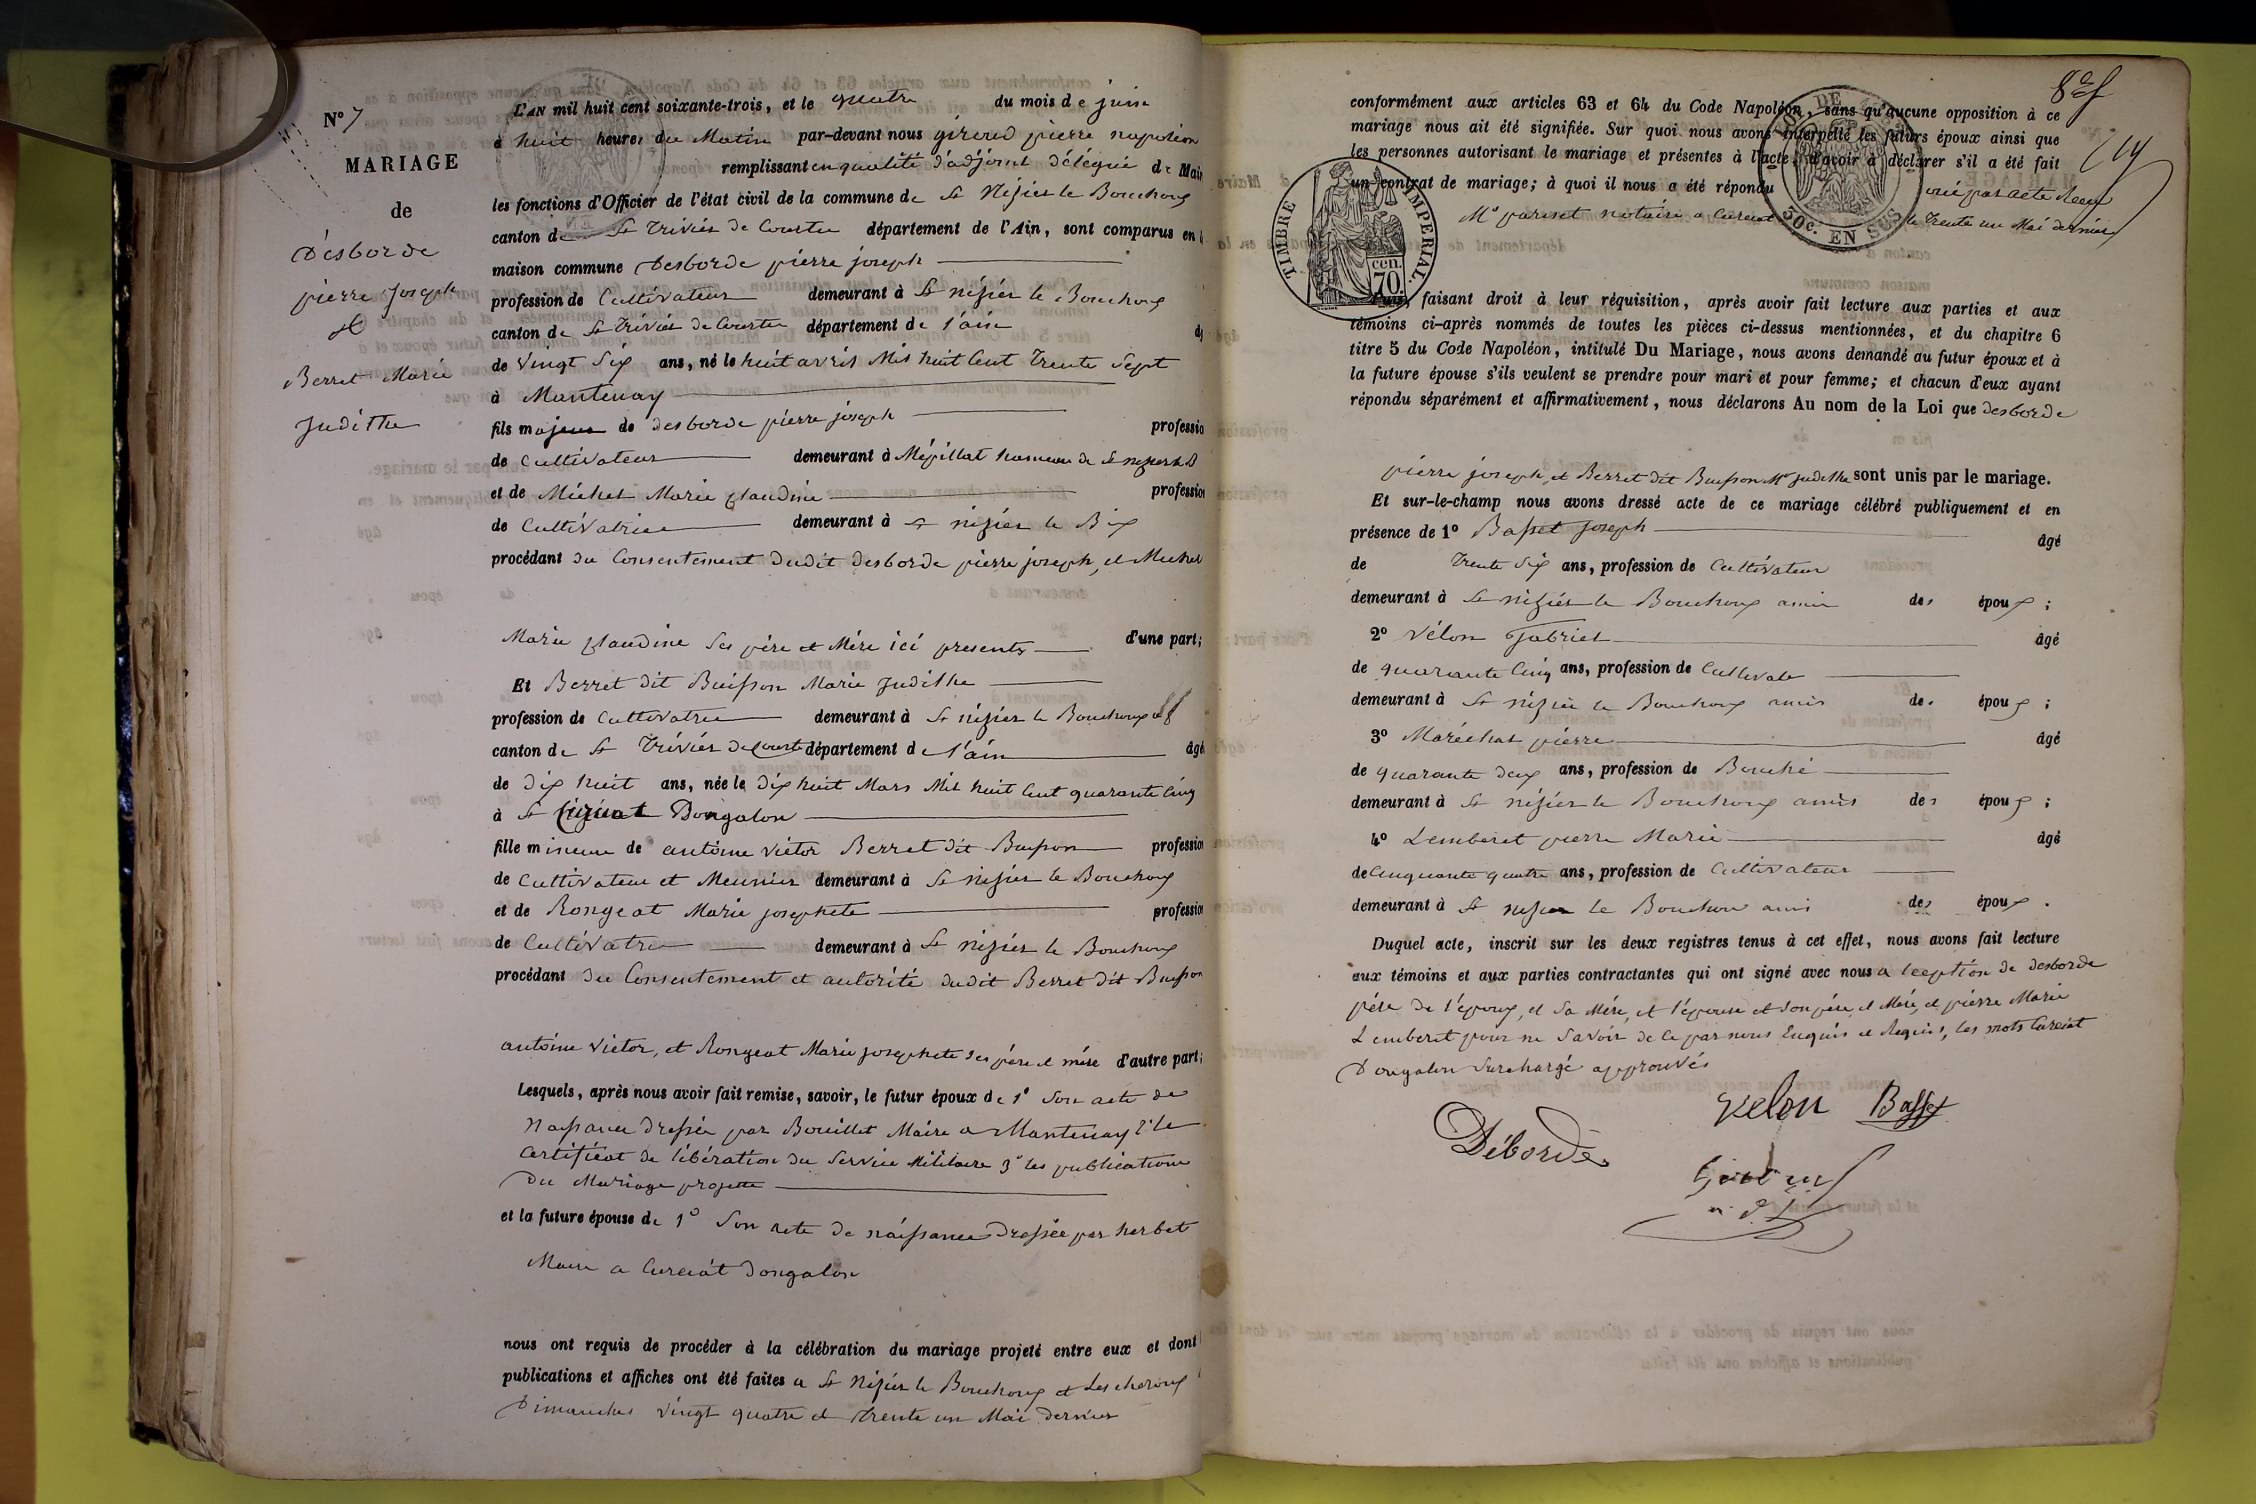 N° 7
MARIAGE
de
Desborde
pierre Joseph
et
Berret Marie
Judithe
L'AN mil huit cent soixante-trois, et le quatre du mois de juin
à huit heures du Matin par-devant nous giroud pierre napoléon
remplissant en qualité d'adjoint délégué de Mair
les fonctions d'Officier de l'état civil de la commune de St Nizier le Bouchoux
canton de St Trivier de Courtes département de l'Ain, sont comparus en
maison commune Desborde pierre joseph
profession de Cultivateur demeurant à St nizier le Bouchoux
canton de St Trivier de Courtes département de l'ain
de vingt six ans, né le huit avril Mil huit Cent Trente Sept
à Mantenay
fils majeur de desborde pierre joseph professio
de Cultivateur demeurant à Mépillat hameau de St nizier le B
et de Michel Marie Claudine profession
de Cultivatrice demeurant à St nizier le Bix
procédant du Consentement dudit desborde pierre joseph, et Michel
Marie Claudine Ses père et Mère ici presents d'une part;
Et Berret dit Buisson Marie Judithe
profession de Cultivatrice demeurant à St nizier le Bouchoux
canton de St Trivier de Courtes département de l'ain âgé
de dix huit ans, née le dix huit Mars Mil huit Cent quarante Cinq
à Curciat Dongalon
fille mineure de antoine Victor Berret dit Buisson profession
de Cultivateur et Meunier demeurant à St nizier le Bouchoux
et de Rongeat Marie josephete profession
de Cultivatrice demeurant à St nizier le Bouchoux
procédant du Consentement et autorité dudit Berret dit Buisson
antoine Victor, et Rongeat Marie josephete Ses père et mère d'autre part;
Lesquels, après nous avoir fait remise, savoir, le futur époux de 1° Son acte de
Naissance dressée par Bouillet Maire a Mantenay 2° le
Certificat de libération du Service Militaire 3° les publications
Du Mariage projetté
et la future épouse de 1° Son acte de naissance dressée par herbet
Maire a Curciat Dongalon
nous ont requis de procéder à la célébration du mariage projeté entre eux et dont
publications et affiches ont été faites a St Nizier le Bouchoux et Lescheroux
Dimanches vingt quatre et trente un Mai dernier
conformément aux articles 63 et 64 du Code Napoléon, sans qu'aucune opposition à ce
mariage nous ait été signifiée. Sur quoi nous avons interpellé les futurs époux ainsi que
les personnes autorisant le mariage et présentes à l'acte, d'avoir à déclarer s'il a été fait
un contrat de mariage; à quoi il nous a été répondu oui par acte Recu
Me pariset notaire a Curciat le Trente un Mai dernier
TIMBRE IMPERIAL.
cen. 70.
50c. EN SUS
Puis, faisant droit à leur réquisition, après avoir fait lecture aux parties et aux
témoins ci-après nommés de toutes les pièces ci-dessus mentionnées, et du chapitre 6
titre 5 du Code Napoléon, intitulé Du Mariage, nous avons demandé au futur époux et à
la future épouse s'ils veulent se prendre pour mari et pour femme; et chacun d'eux ayant
répondu séparément et affirmativement, nous déclarons Au nom de la Loi que desborde
pierre joseph, et Berret dit Buisson Mie Judithe sont unis par le mariage.
Et sur-le-champ nous avons dressé acte de ce mariage célébré publiquement et en
présence de 1° Basset Joseph âgé
de Trente Six ans, profession de Cultivateur
demeurant à St nizier le Bouchoux amis des époux;
2° Vélon Gabriel âgé
de quarante Cinq ans, profession de Cultivate
demeurant à St nizier le Bouchoux amis des époux;
3° Maréchal pierre âgé
de quarante deux ans, profession de Bouché
demeurant à St nizier le Bouchoux amis des époux;
4° Lemberet pierre Marie âgé
de Cinquante quatre ans, profession de Cultivateur
demeurant à St nizier le Bouchou amis des époux.
Duquel acte, inscrit sur les deux registres tenus à cet effet, nous avons fait lecture
aux témoins et aux parties contractantes qui ont signé avec nous a leception de desborde
père de l'époux, et Sa Mère, et l'épouse et Son père et Mère, et pierre Marie
Lemberet pour ne Savoir de ce par nous Enquis et Requis, les mots Curciat
Dongalon Surchargé approuvés
Velon Basset
Débordes